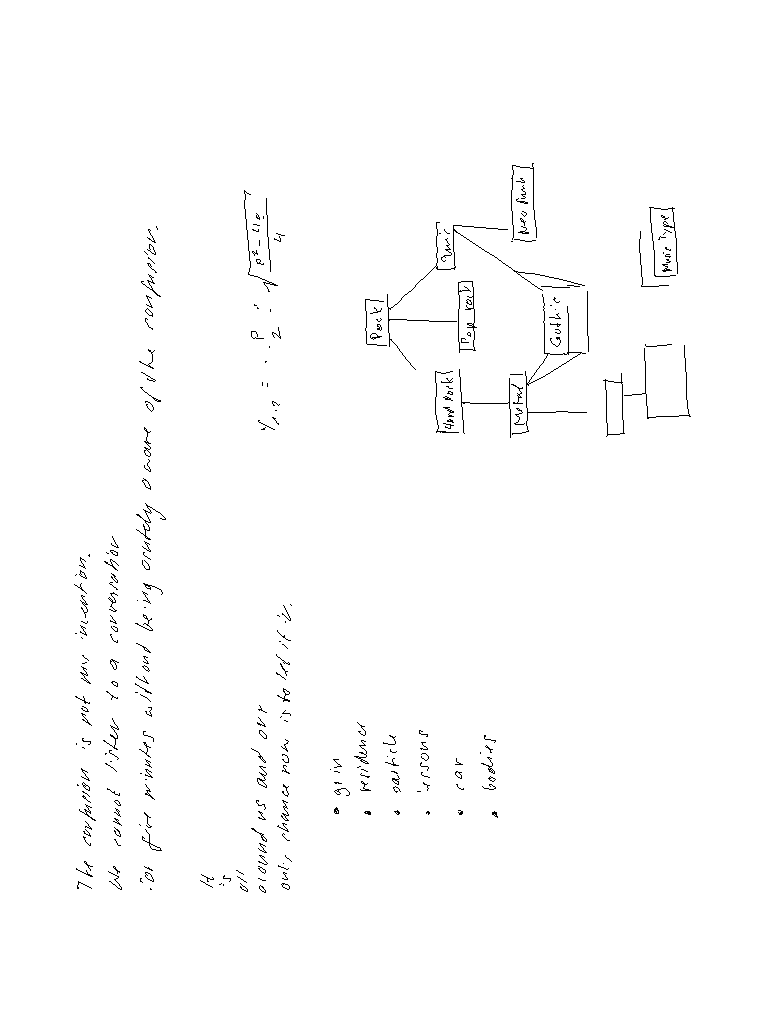 The confusion is not my invention.
We cannot listen to a conversation
for five minutes without being acutely aware of the confusion.
It
is
all
around us and our
only chance now is to let it in.
• grin
• residence
• particle
• 
• car
• bodies
Y1,2 = - P/2 ± √((P² - 4q)/4)
Rock
Hard Rock
Pop rock
Metal
Gothic
Neo Punk
Music Type